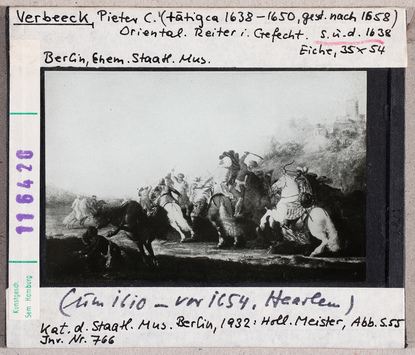 Verbeeck, Pieter C. (tätig ca 1638-1650, gest. nach 1658)
Oriental. Reiter i. Gefecht. s.u.d. 1638
Eiche, 35x54
Berlin, Ehem. Staatl. Mus.
116420
Kunstgesch.
Sem. Hamburg
(um 1610 - vor 1654, Haarlem)
Kat. d. Staatl. Mus. Berlin, 1932: Holl. Meister, Abb. S.55
Inv. Nr. 766